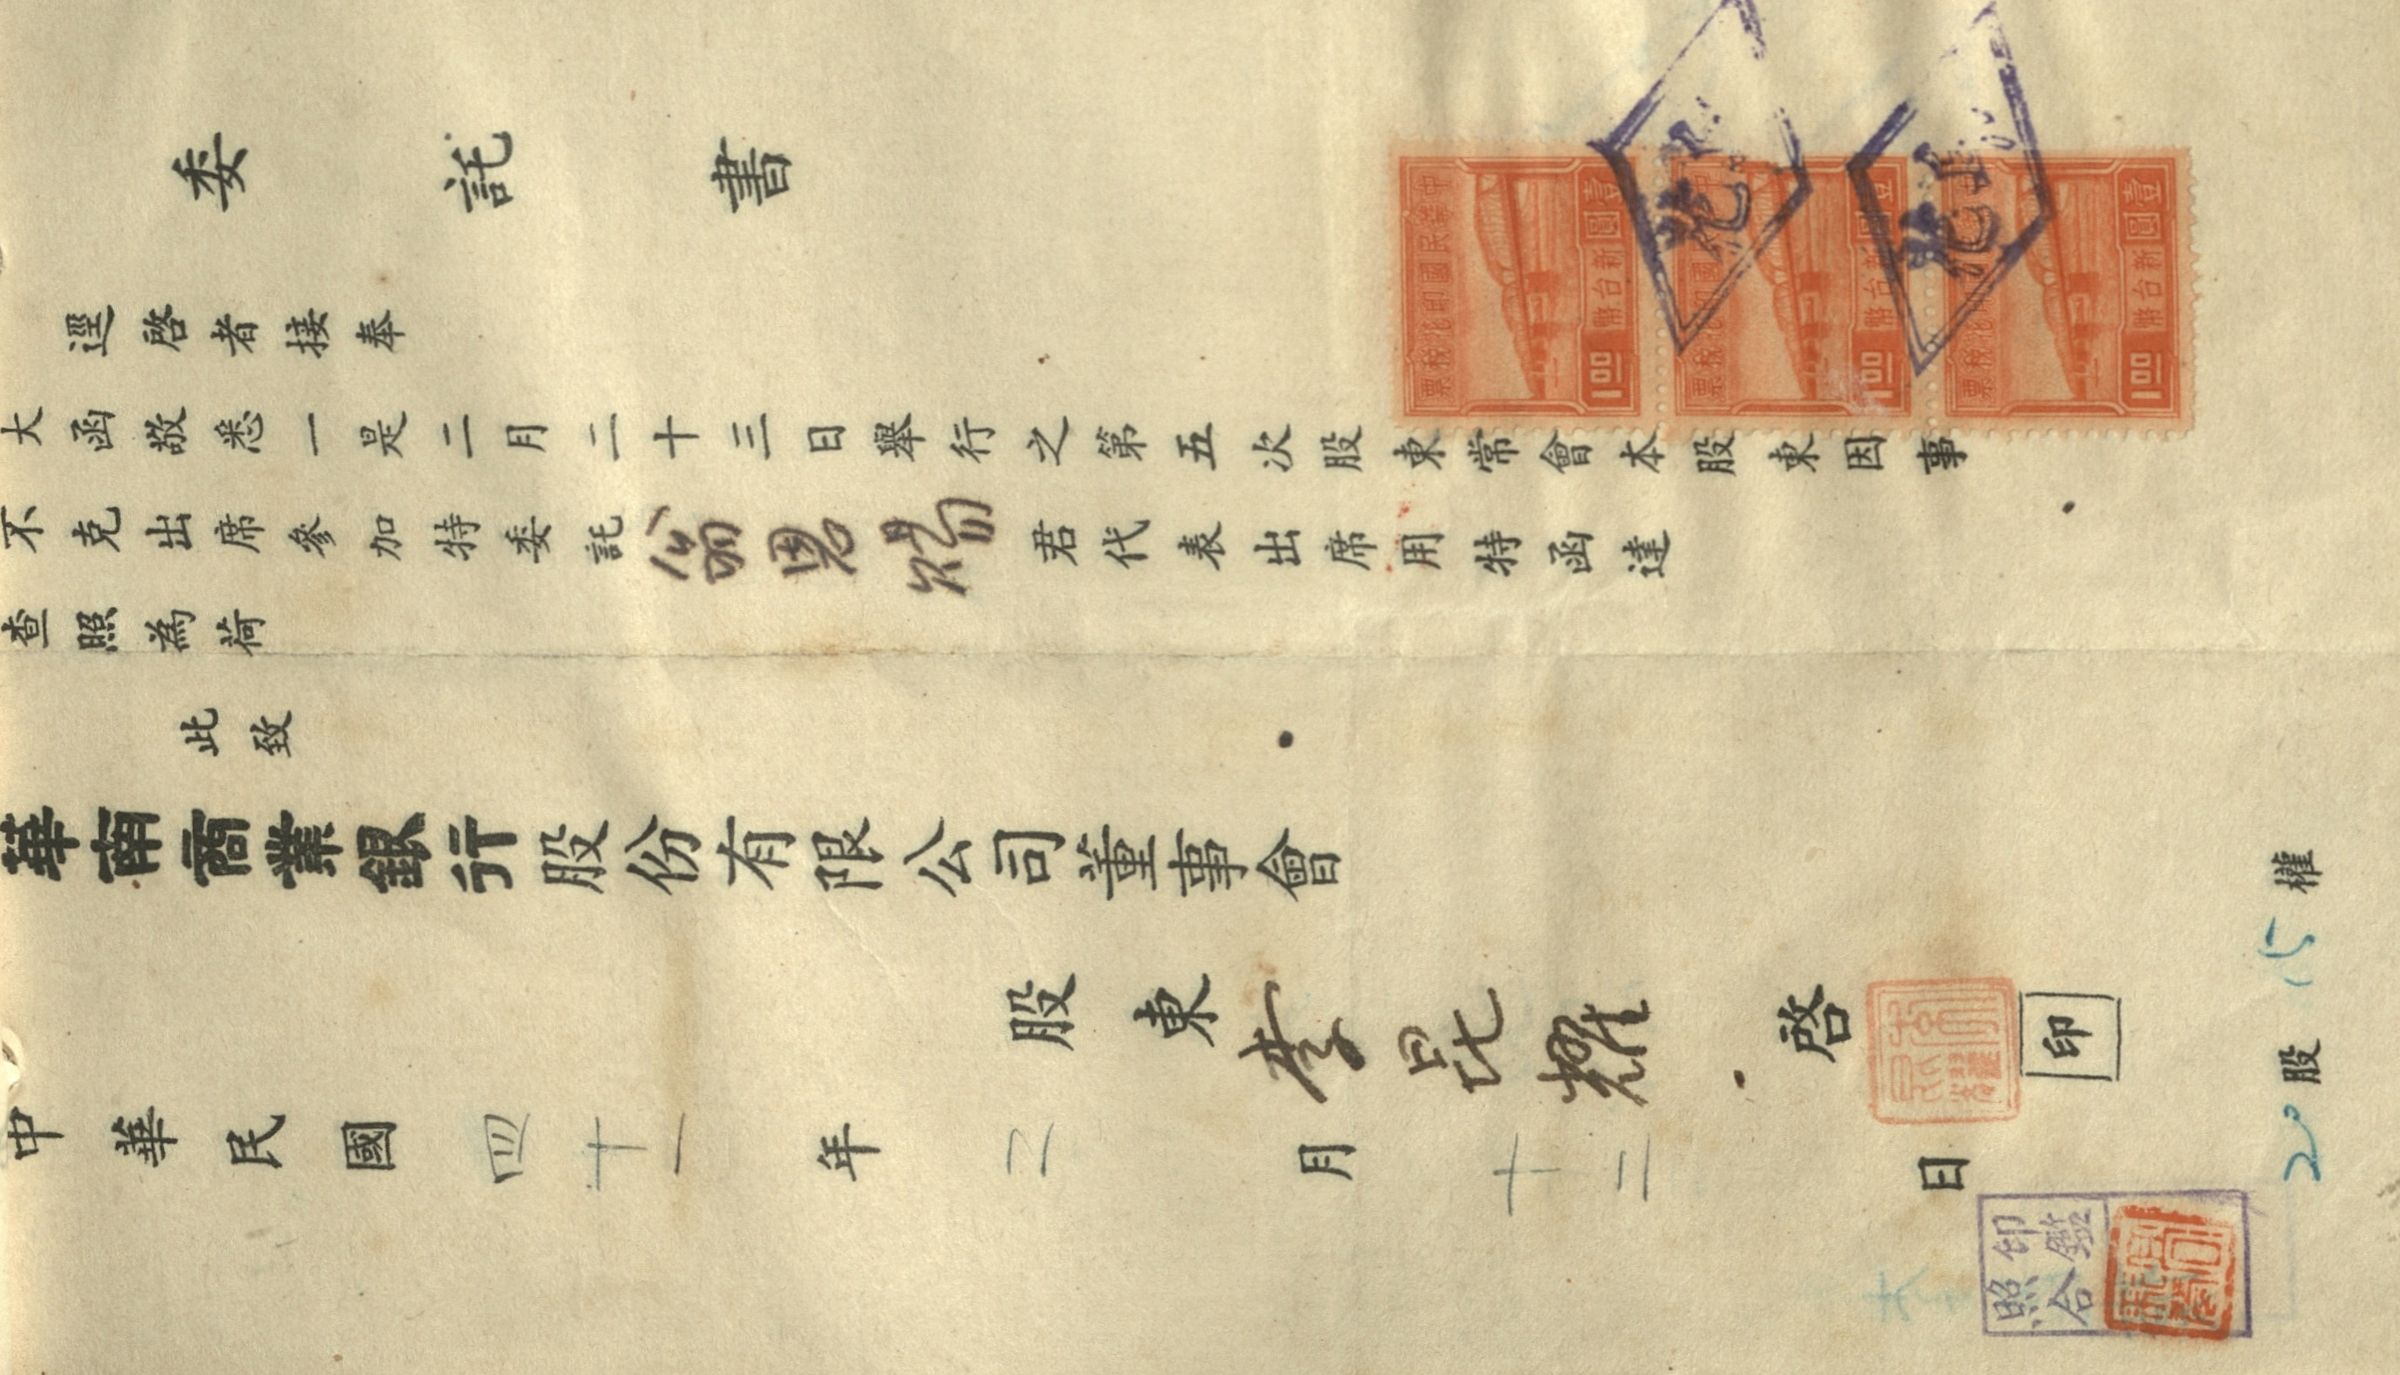 委託書
逕啓者接奉
大函敬悉一是二月二十三日舉行之第五次股東常會本股東因事
不克出席參加特委託翁恩焬君代表出席用特函達
查照為荷
此致
華南商業銀行股份有限公司董事會
股東李昆耀啓
印
中華民國四十一年二月十二日
20股 15權
印鑑照合
中華民國印花稅票 壹圓新台幣 1.00
國印花稅票 圓幣 1.00
稅票 壹圓新台幣 1.00